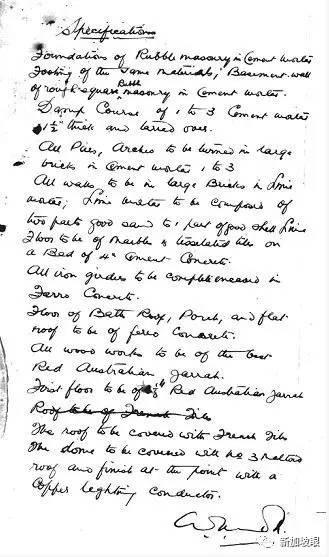 Specifications
Foundations of Rubble masonry in Cement mortar
Footing of the same materials; Basement wall
of rough square Rubble masonry in Cement mortar.
Damp Course of 1 to 3 Cement mortar
1½" thick and tarred over.
All Piers, Arches to be turned in large
bricks in Cement mortar 1 to 3
All walls to be in large Bricks in Lime
mortar; Lime mortar to be composed of
two parts good sand to 1 part of good shell Lime
Floor to be of Marble & Tesselated tiles on
a Bed of 4" Cement Concrete.
All iron girders to be complete encased in
Ferro Concrete.
Floor of Bath Room, Porch, and flat
roof to be of ferro Concrete.
All wood works to be of the best
Red Australian Jarrah.
First floor to be of Red Australian Jarrah
Roof to be of French Tiles
The roof to be covered with French Tiles
The dome to be covered with No 3 Malthoid
roof and finish at the point with a
Copper lighting conductor.
新加坡眼